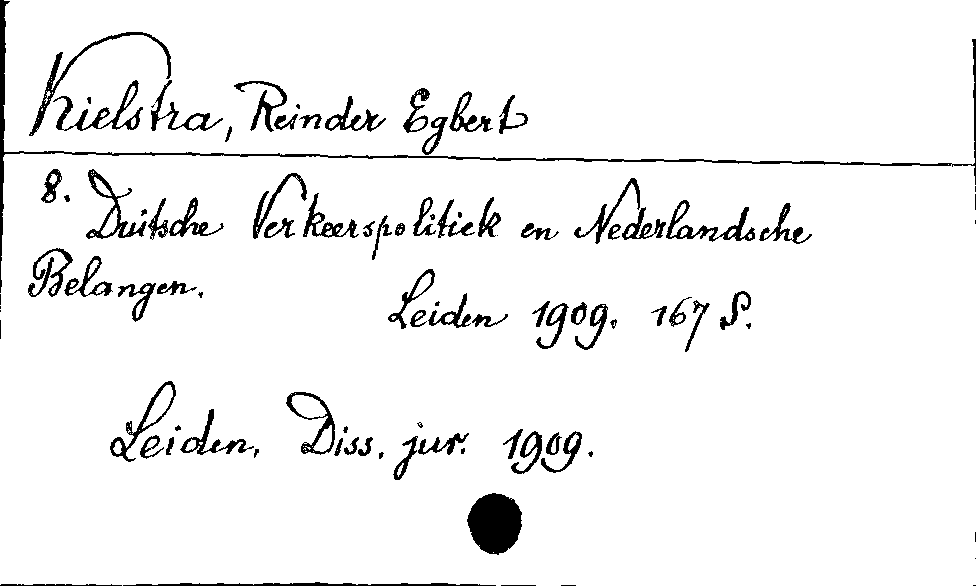 Kielstra, Reinder Egbert
8. Duitsche Verkeerspolitiek en Nederlandsche
Belangen.
Leiden 1909. 167 S.
Leiden, Diss. jur. 1909.